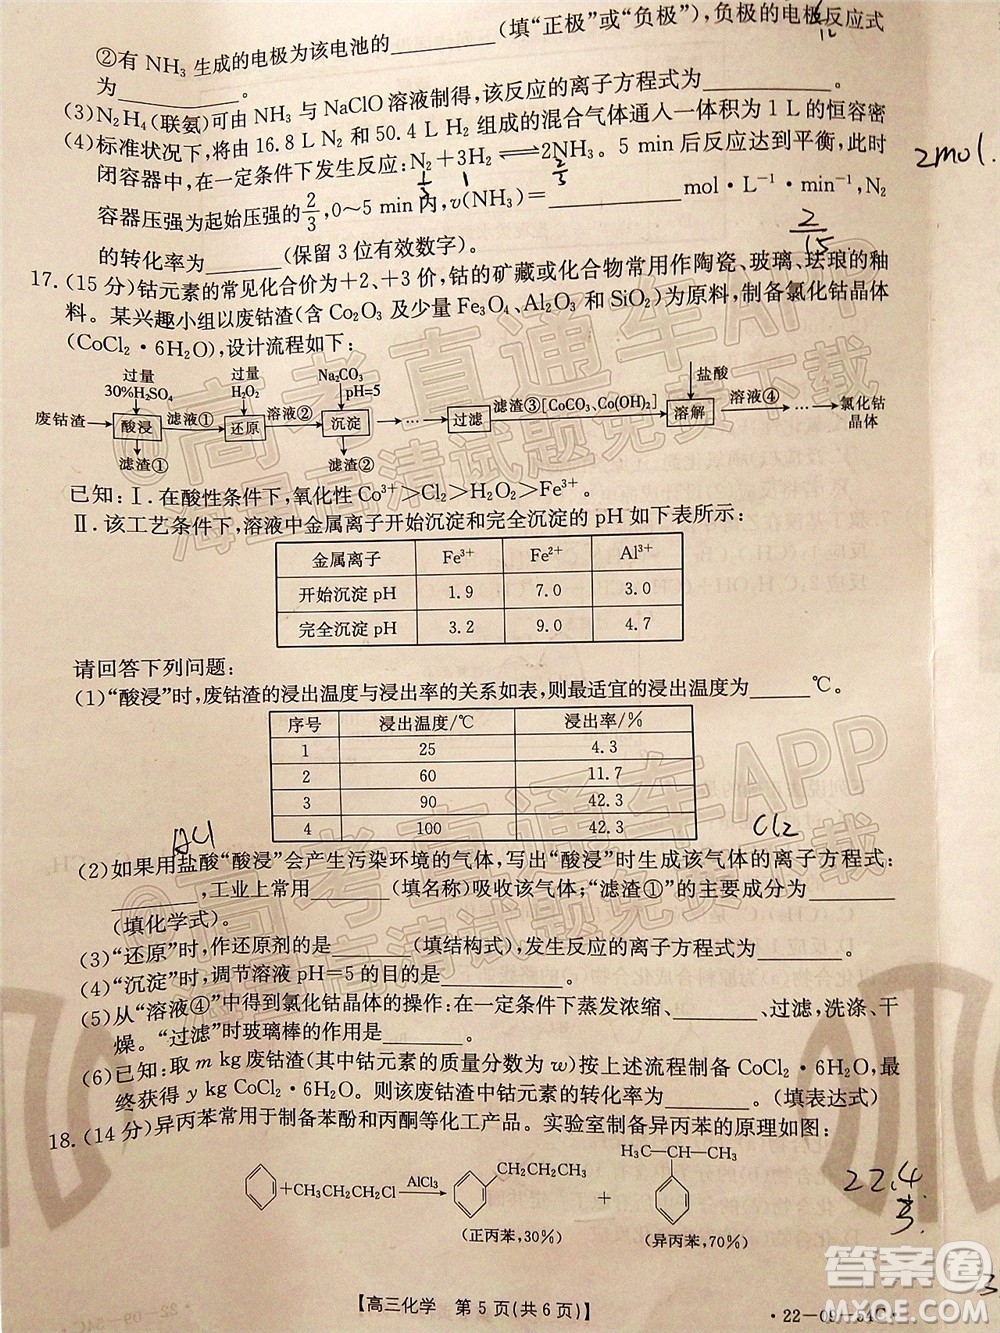 ②有 NH₃ 生成的电极为该电池的________(填“正极”或“负极”),负极的电极反应式
为________。
(3)N₂H₄(联氨)可由 NH₃ 与 NaClO 溶液制得,该反应的离子方程式为________。
(4)标准状况下,将由 16.8 L N₂ 和 50.4 L H₂ 组成的混合气体通入一体积为 1 L 的恒容密
闭容器中,在一定条件下发生反应:N₂+3H₂⇌2NH₃。5 min 后反应达到平衡,此时
2mol.
1/3 1 2/3
容器压强为起始压强的2/3,0~5 min 内,v(NH₃)=________mol·L⁻¹·min⁻¹,N₂
2/15
的转化率为________(保留 3 位有效数字)。
17.(15 分)钴元素的常见化合价为+2、+3 价,钴的矿藏或化合物常用作陶瓷、玻璃、珐琅的釉
料。某兴趣小组以废钴渣(含 Co₂O₃ 及少量 Fe₃O₄、Al₂O₃ 和 SiO₂)为原料,制备氯化钴晶体
(CoCl₂·6H₂O),设计流程如下:
过量 30%H₂SO₄ 过量 H₂O₂ Na₂CO₃ pH=5 盐酸
废钴渣→酸浸 滤液①→还原 溶液②→沉淀→…→过滤 滤渣③[CoCO₃、Co(OH)₂]→溶解 溶液④→…→氯化钴晶体
滤渣① 滤渣②
已知:Ⅰ.在酸性条件下,氧化性 Co³⁺>Cl₂>H₂O₂>Fe³⁺。
Ⅱ.该工艺条件下,溶液中金属离子开始沉淀和完全沉淀的 pH 如下表所示:
金属离子 Fe³⁺ Fe²⁺ Al³⁺
开始沉淀 pH 1.9 7.0 3.0
完全沉淀 pH 3.2 9.0 4.7
请回答下列问题:
(1)“酸浸”时,废钴渣的浸出温度与浸出率的关系如表,则最适宜的浸出温度为______℃。
序号 浸出温度/℃ 浸出率/%
1 25 4.3
2 60 11.7
3 90 42.3
4 100 42.3
Cl₂
(2)如果用盐酸“酸浸”会产生污染环境的气体,写出“酸浸”时生成该气体的离子方程式:
________,工业上常用________(填名称)吸收该气体;“滤渣①”的主要成分为________
(填化学式)。
(3)“还原”时,作还原剂的是________(填结构式),发生反应的离子方程式为________。
(4)“沉淀”时,调节溶液 pH=5 的目的是________。
(5)从“溶液④”中得到氯化钴晶体的操作:在一定条件下蒸发浓缩、________、过滤、洗涤、干
燥。“过滤”时玻璃棒的作用是________。
(6)已知:取 m kg 废钴渣(其中钴元素的质量分数为 w)按上述流程制备 CoCl₂·6H₂O,最
终获得 y kg CoCl₂·6H₂O。则该废钴渣中钴元素的转化率为________。(填表达式)
18.(14 分)异丙苯常用于制备苯酚和丙酮等化工产品。实验室制备异丙苯的原理如图:
+CH₃CH₂CH₂Cl AlCl₃ CH₂CH₂CH₃ + H₃C—CH—CH₃
(正丙苯,30%) (异丙苯,70%)
22.4
【高三化学 第 5 页(共 6 页)】
·22-09-54C·
高考直通车APP
海量高清试题免费下载
高考直通车APP
海量高清试题免费下载
答案圈
MXQE.COM